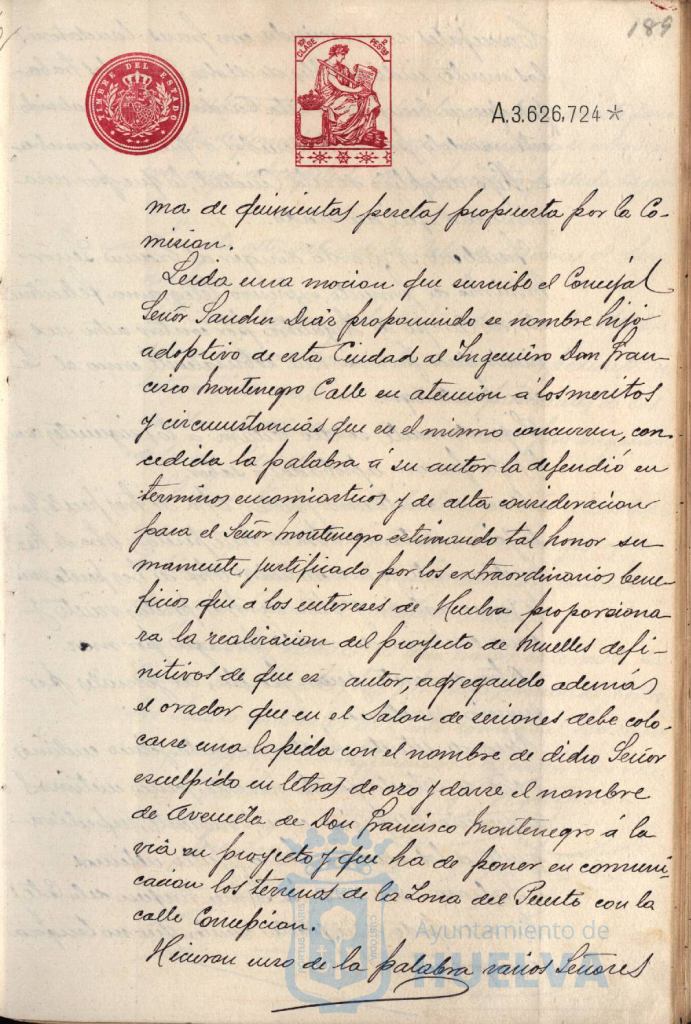 189
TIMBRE DEL ESTADO
10ª CLASE 2 PESTAS
A.3.626,724*
ma de quinientas pesetas propuesta por la Co-
mision.
Leida una mocion que suscribe el Concejal
Señor Sanchez Diaz proponiendo se nombre hijo
adoptivo de esta Ciudad al Ingeniero Don Fran-
cisco Montenegro Calle en atencion á los meritos
y circunstancias que en el mismo concurren, con-
cedida la palabra á su autor la defendió en
terminos encomiasticos y de alta consideracion
para el Señor Montenegro estimando tal honor su-
mamente justificado por los extraordinarios bene-
ficios que á los intereses de Huelva proporciona-
ra la realizacion del proyecto de muelles defi-
nitivos de que es autor, agregando además
el orador que en el Salon de sesiones debe colo-
carse una lapida con el nombre de dicho Señor
esculpido en letras de oro y darse el nombre
de Avenida de Don Francisco Montenegro á la
via en proyecto y que ha de poner en comuni-
cacion los terrenos de la Zona del Puerto con la
calle Concepcion.
Hicieron uso de la palabra varios Señores
Ayuntamiento de
HUELVA